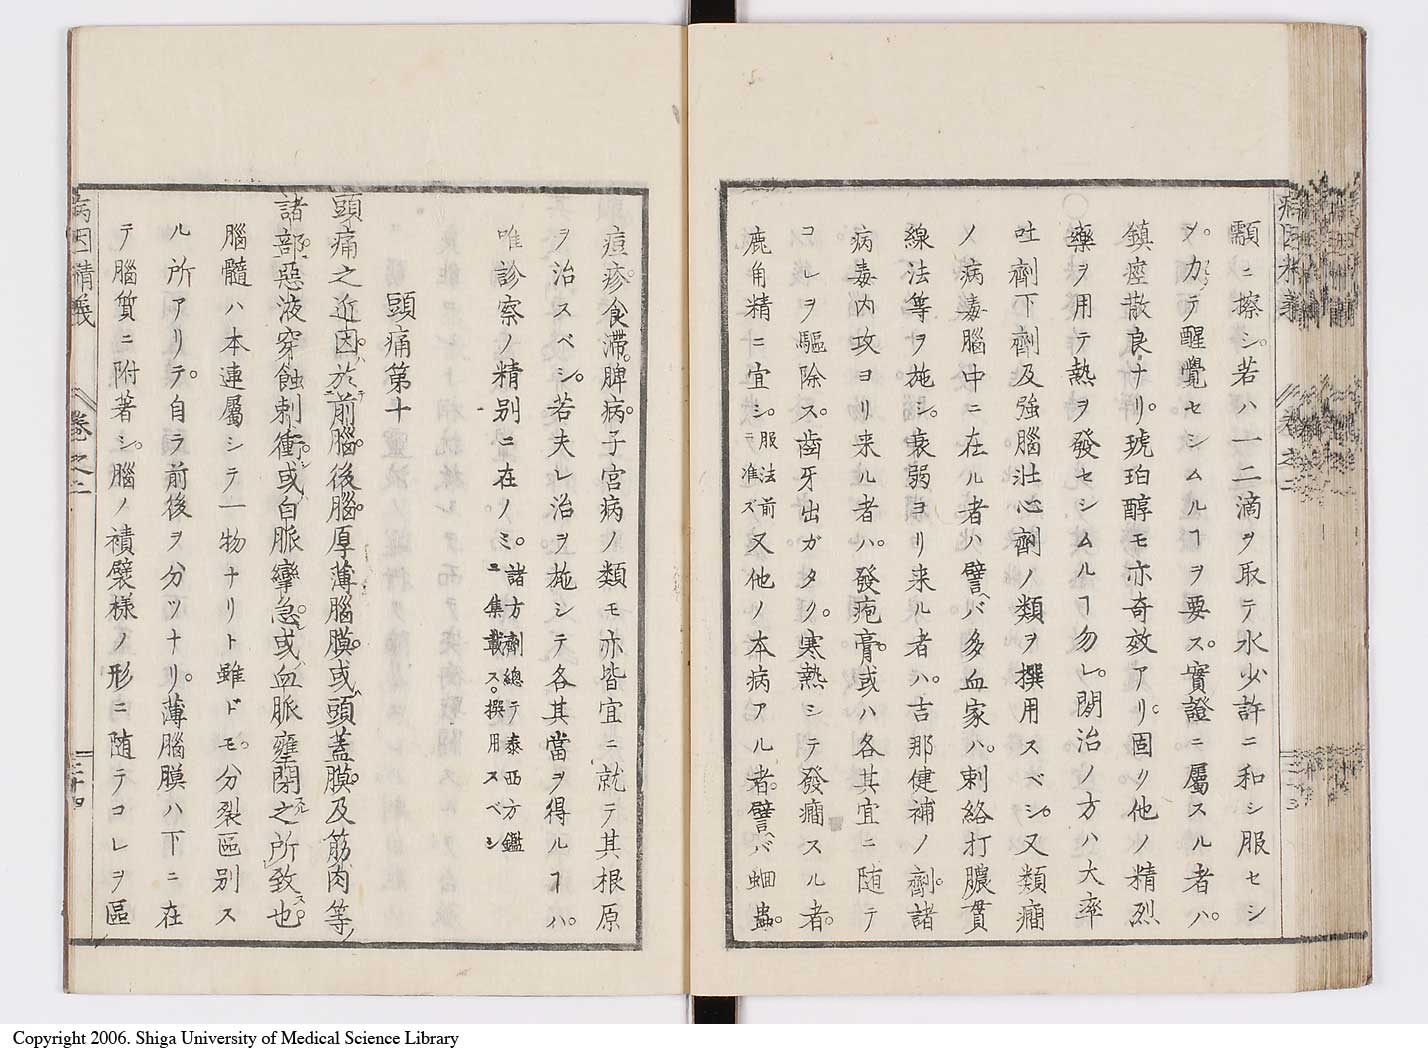 顬ニ擦シ。若ハ一二滴ヲ取テ水少許ニ和シ服セシ
メ。力テ醒覺セシムルヿヲ要ス。實證ニ屬スル者ハ。
鎮痙散良ナリ。琥珀醇モ亦奇效アリ。固リ他ノ精烈
藥ヲ用テ熱ヲ發セシムルヿ勿レ。間治ノ方ハ大率
吐劑下劑及強腦壮心劑ノ類ヲ撰用スベシ。又類癎
ノ病毒腦中ニ在ル者ハ譬ヘバ多血家ハ。刺絡打膿貫
線法等ヲ施シ。衰弱ヨリ来ル者ハ。吉那健補ノ劑。諸
病毒内攻ヨリ来ル者ハ。發疱膏。或ハ各其宜ニ随テ
コレヲ驅除ス。齒牙出ガタク。寒熱シテ發癎スル者。
鹿角精ニ宜シ。服法前ニ准ズ又他ノ本病アル者。譬ヘバ蛔蟲。
痘疹。食滞。脾病。子宮病ノ類モ亦皆宜ニ就テ其根原
ヲ治スベシ。若夫レ治ヲ施シテ各其當ヲ得ルヿハ。
唯診察ノ精别ニ在ノミ。諸方劑總テ泰西方鑑ニ集載ス。撰用スベシ
頭痛第十
頭痛之近因。於前腦。後腦。厚薄腦膜。或頭蓋膜。及筋肉等
諸部。惡液穿蝕刺衝。或自脈攣急。或血脈壅閉之所致也
腦髓ハ本連屬シテ一物ナリト雖ドモ。分裂區别ス
ル所アリテ。自ラ前後ヲ分ツナリ。薄腦膜ハ下ニ在
テ腦質ニ附著シ。腦ノ襀襞様ノ形ニ随テコレヲ區
病因精義
巻之二
三十四
Copyright 2006. Shiga University of Medical Science Library